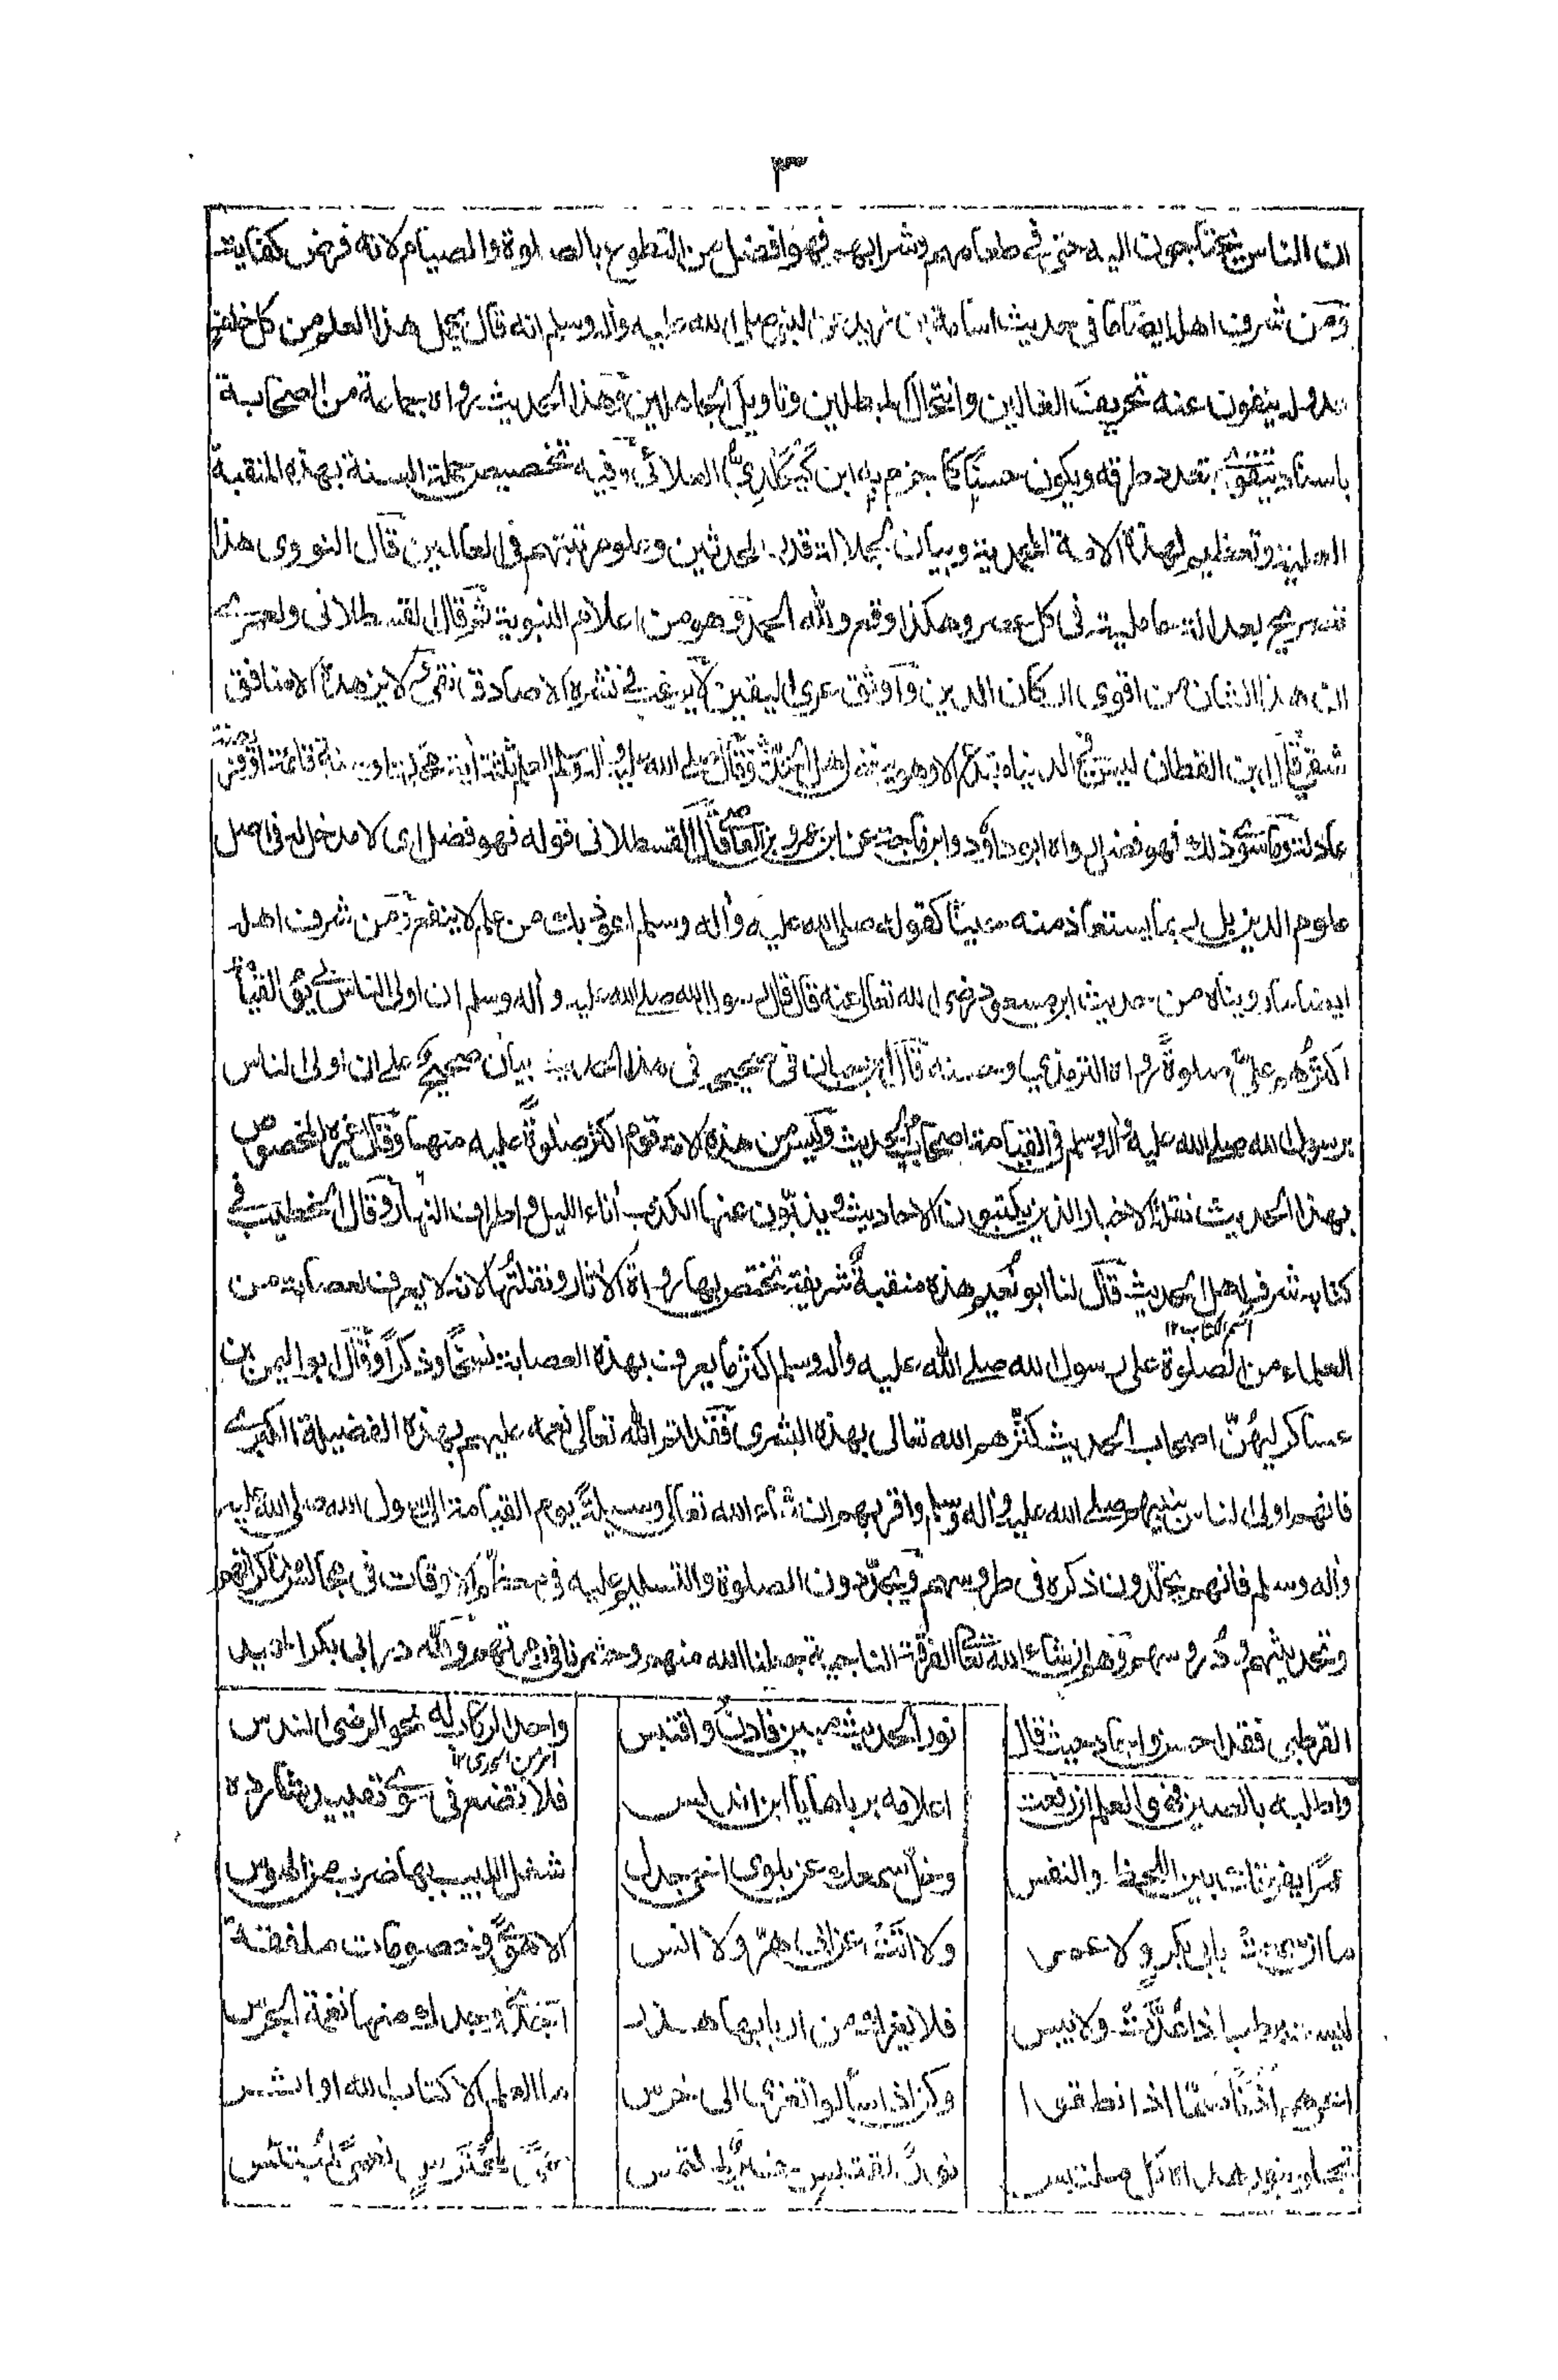 ٣
ان الناس يحتاجون اليه حتى في طعامهم وشرابهم فهو افضل من التطوع بالصلوة والصيام لانه فرض كفاية
ومن شرف اهله ايضا ما في حديث اسامة بن زيد عن النبي صلى الله عليه وأله وسلم انه قال يحمل هذا العلم من كل خلف
عدوله ينفون عنه تحريف الغالين وانتحال المبطلين وتاويل الجاهلين وهذا الحديث رواه جماعة من الصحابة
باسناد يتقوى بتعدد طرقه ويكون حسنا كما جزم به ابن كيكلدي العلائي وفيه تخصيص حملة السنة بهذه المنقبة
العلية وتعظيم لهذه الامة المحمدية وبيان لجلالة قدر المحدثين وعلو مرتبتهم في العالمين قال النووي هذا
تصريح بعدالة حامليه في كل عصر وهكذا وقع ولله الحمد وهو من اعلام النبوية ثم قال القسطلاني ولعمري
ان هذا الشان من اقوى اركان الدين واوثق عرى اليقين لا يرغب في نشره الا صادق تقي ولا يزهده الا منافق
شقي قال ابن القطان ليس في الدنيا مبتدع الا وهو يبغض اهل الحديث وقال صلى الله عليه وأله وسلم العلم ثلثة أية محكمة او سنة قائمة او فريضة
عادلة وما سوى ذلك فهو فضل رواه ابو داؤد وابن ماجة عن ابن عمرو بن العاص قال القسطلاني قوله فهو فضل اي لا مدخل له في اصل
علوم الدين بل ربما يستعاذ منه حينا كقوله صلى الله عليه وأله وسلم اعوذ بك من علم لا ينفع ومن شرف اهله
ايضا ما رويناه من حديث ابن مسعود رضي الله تعالى عنه قال قال رسول الله صلى الله عليه وأله وسلم ان اولى الناس بي يوم القيامة
اكثرهم علي صلوة رواه الترمذي وحسنه قال ابن حبان في صحيحه في هذا الحديث بيان صحيح على ان اولى الناس
برسول الله صلى الله عليه وأله وسلم في القيامة اصحاب الحديث وليس من هذه الامة قوم اكثر صلوة عليه منهم وقال غيره المخصوص
بهذا الحديث نقلة الاخبار الذين يكتبون الاحاديث ويذبون عنها الكذب أناء الليل واطراف النهار وقال الخطيب في
كتابه شرف اهل الحديث قال لنا ابو نعيم هذه منقبة شريفة تختص بها رواة الأثار ونقلتها لانه لا يعرف لعصابة من
اسم الكتاب ١٢
العلماء من الصلوة على رسول الله صلى الله عليه وأله وسلم اكثر ما يعرف بهذه العصابة نسخا وذكرا وقال ابو اليمن بن
عساكر ليهن اصحاب الحديث كثرهم الله تعالى بهذه البشرى فقد اتم الله تعالى نعمه عليهم بهذه الفضيلة الكبرى
فانهم اولى الناس بنبيهم صلى الله عليه وأله وسلم واقربهم ان شاء الله تعالى وسيلة يوم القيامة الى رسول الله صلى الله عليه
وأله وسلم فانهم يخلدون ذكره في طروسهم ويجددون الصلوة والتسليم عليه في معظم الاوقات في مجالس مذاكراتهم
وتحديثهم ودروسهم وهم ان شاء الله تعالى الفرقة الناجية جعلنا الله منهم وحشرنا في زمرتهم ولله در ابي بكر احميد
القرطبي فقد احسن واجاد حيث قال
نور الحديث مبين فادن واقتبس
واحد الركاب له نحو الرضى الندس
امر من الحدى ١٢
واطلبه بالصين فهو العلم ان رفعت
اعلامه برباها يا ابن اندلس
فلا تضع في سوى تقييد شارده
عمرا يفوتك بين اللحظ والنفس
وخل سمعك عن بلوى اخى جدل
شغل اللبيب بها ضرب من الهوس
ما ان سمت بابي بكر ولا عمر
ولا اتت عن ابي هر ولا انس
الا هوى وخصومات ملفقة
ليست برطب اذا عدت ولا يبس
فلا يغرك من اربابها هذر
اجدى وجدك منها نغمة الجرس
اعرهم اذنا صما اذا نطقوا
وكن اذا سألوا تعزى الى خرس
ما العلم الا كتاب الله او اثر
يجلو بنور هداه كل ملتبس
نور لمقتبس خير لملتمس